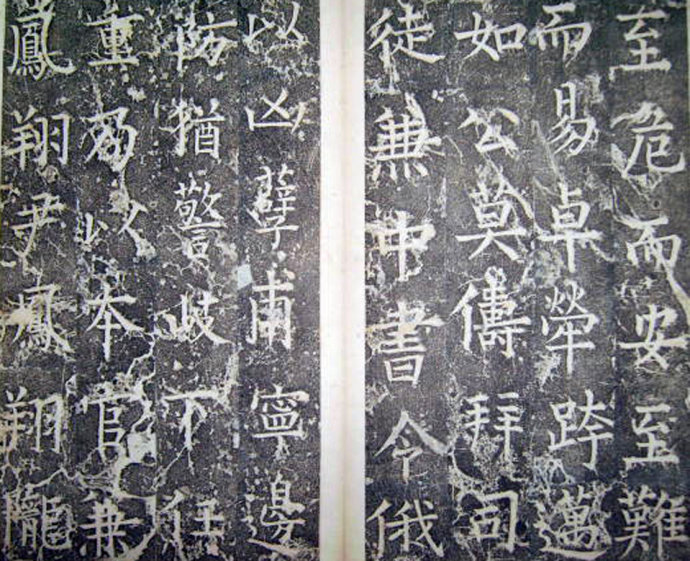 至危而安至難
而易卓犖跨邁
如公莫儔拜司
徒兼中書令俄
以凶孽甫寧邊
防猶警岐下任
重乃以本官兼
鳳翔尹鳳翔隴